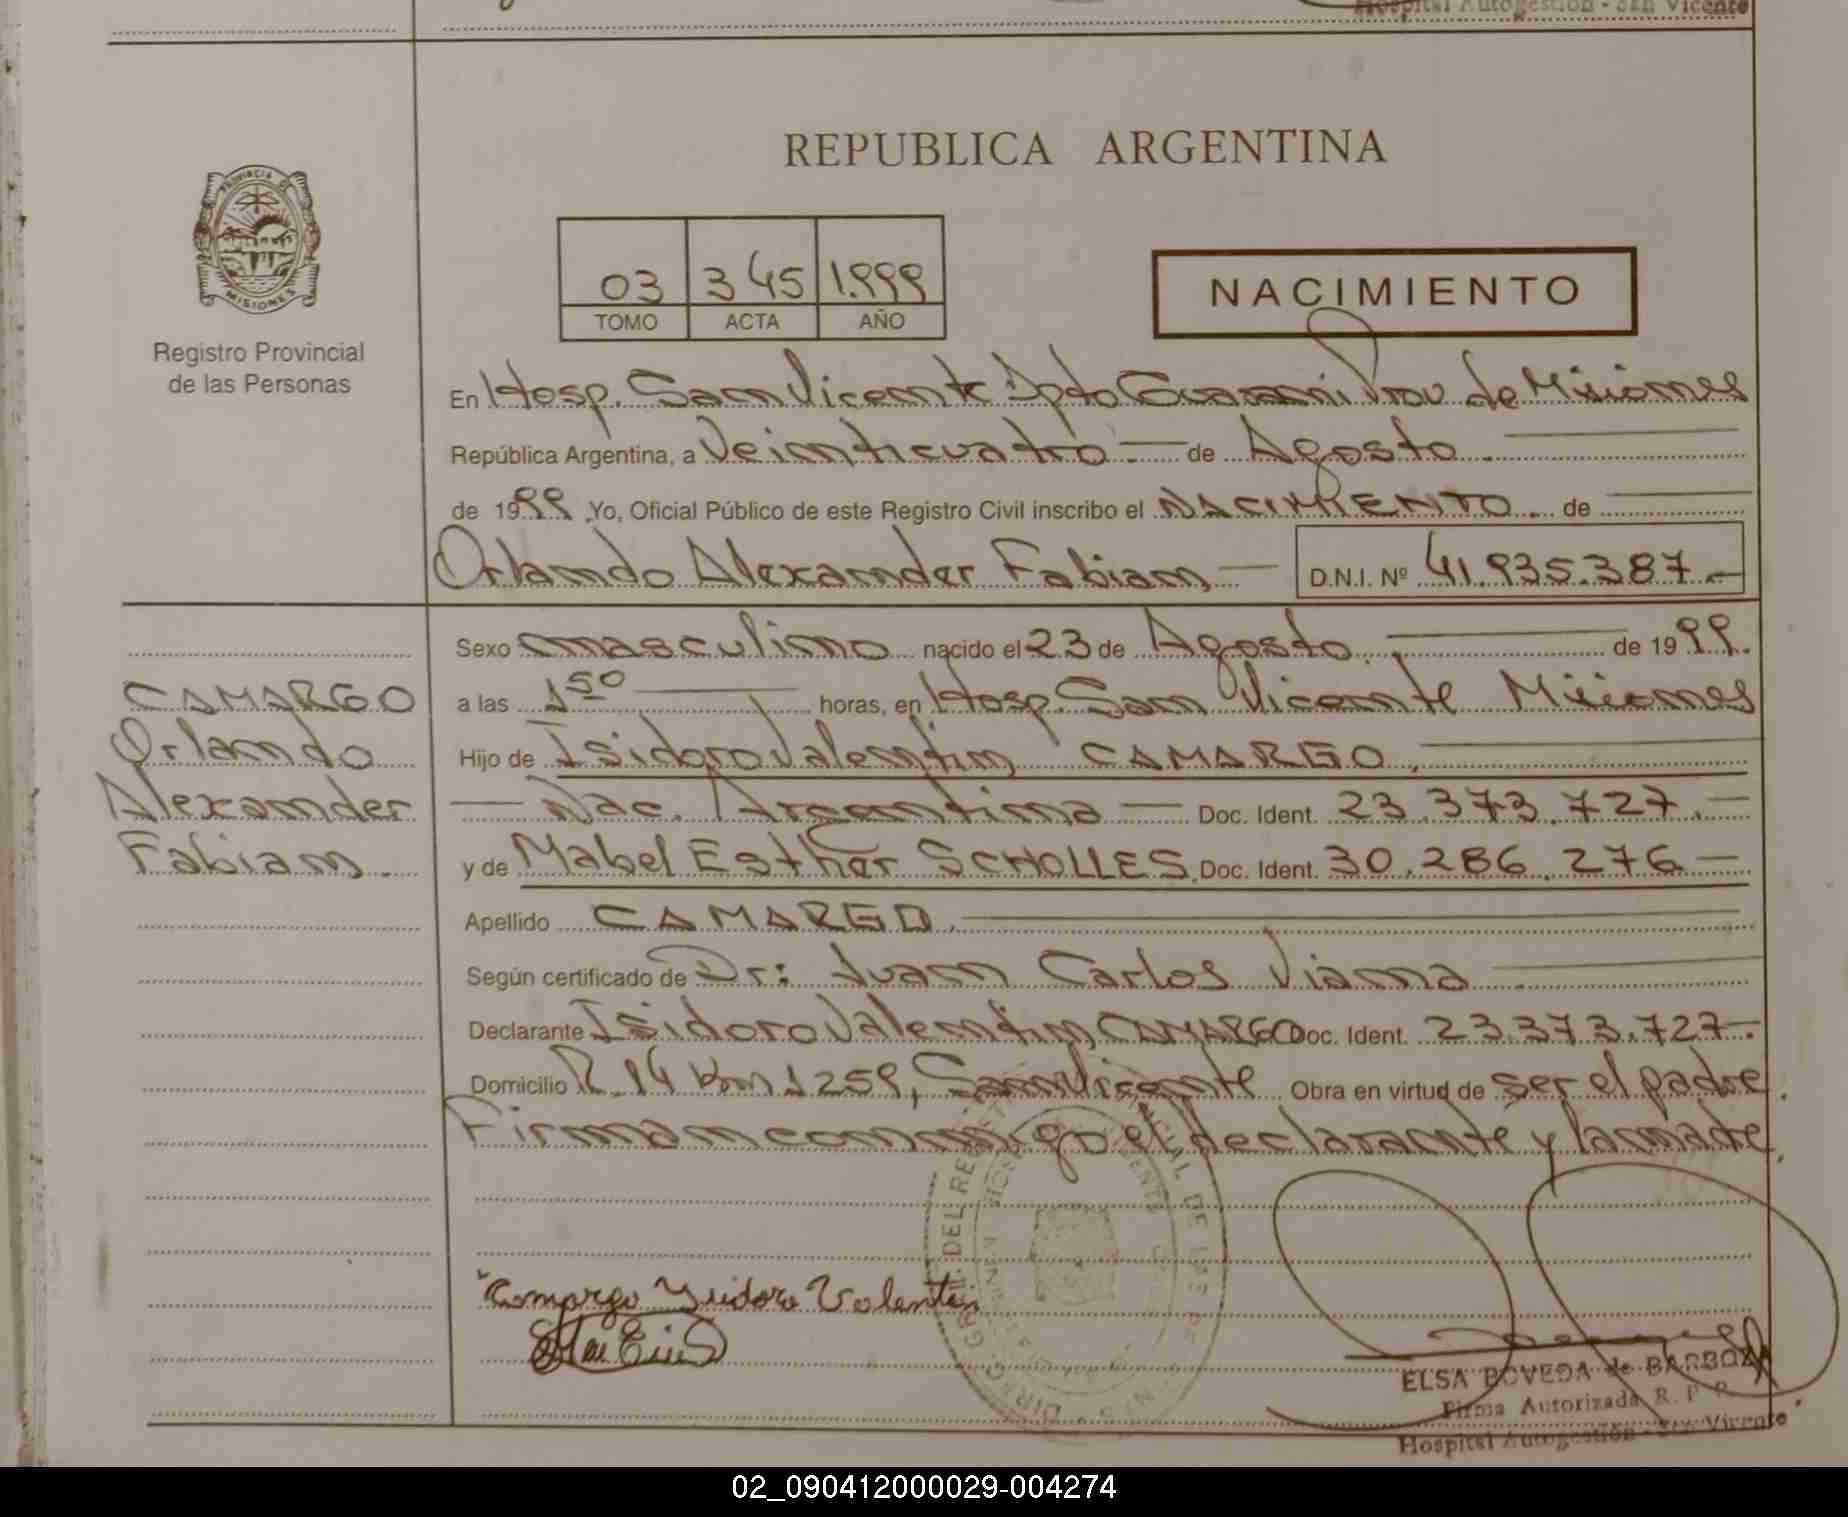 Hospital Autogestión - San Vicente
REPUBLICA ARGENTINA
PROVINCIA DE
MISIONES
Registro Provincial
de las Personas
03 345 1.999
TOMO ACTA AÑO
NACIMIENTO
En Hosp. San Vicente Dpto Guarani Prov de Misiones
República Argentina, a Veinticuatro.— de Agosto.
de 1999. Yo, Oficial Público de este Registro Civil inscribo el NACIMIENTO. de
Orlando Alexander Fabian,— D.N.I. Nº 41.935.387.—
Sexo masculino nacido el 23 de Agosto. de 1999.
a las 1 50 horas, en Hosp. San Vicente Misiones
Hijo de Isidoro Valentin CAMARGO,
— Nac. Argentina — Doc. Ident. 23.373.727.—
y de Mabel Esther SCHOLLES, Doc. Ident. 30.286.276—
Apellido CAMARGO.
Según certificado de Dr: Juan Carlos Viana
Declarante Isidoro Valentin, CAMARGO Doc. Ident. 23.373.727-.
Domicilio R.14 Km 1259, San Vicente Obra en virtud de ser el padre.
Firman conmigo el declarante y la madre.
CAMARGO
Orlando
Alexander
Fabian.
Camargo Ysidoro Valentin
ELSA BOVEDA de BARBOZA
Firma Autorizada R. P. P.
Hospital Autogestión - San Vicente
02_090412000029-004274